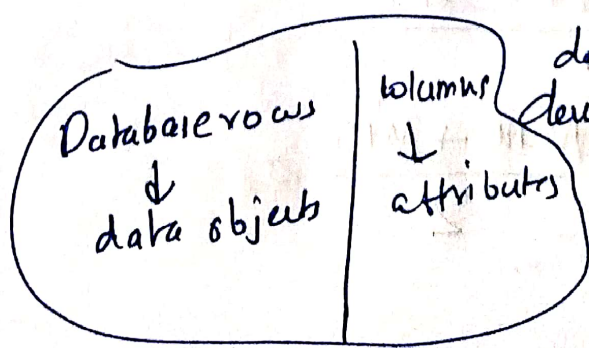 Database rows
↓
data objects
columns
↓
attributes